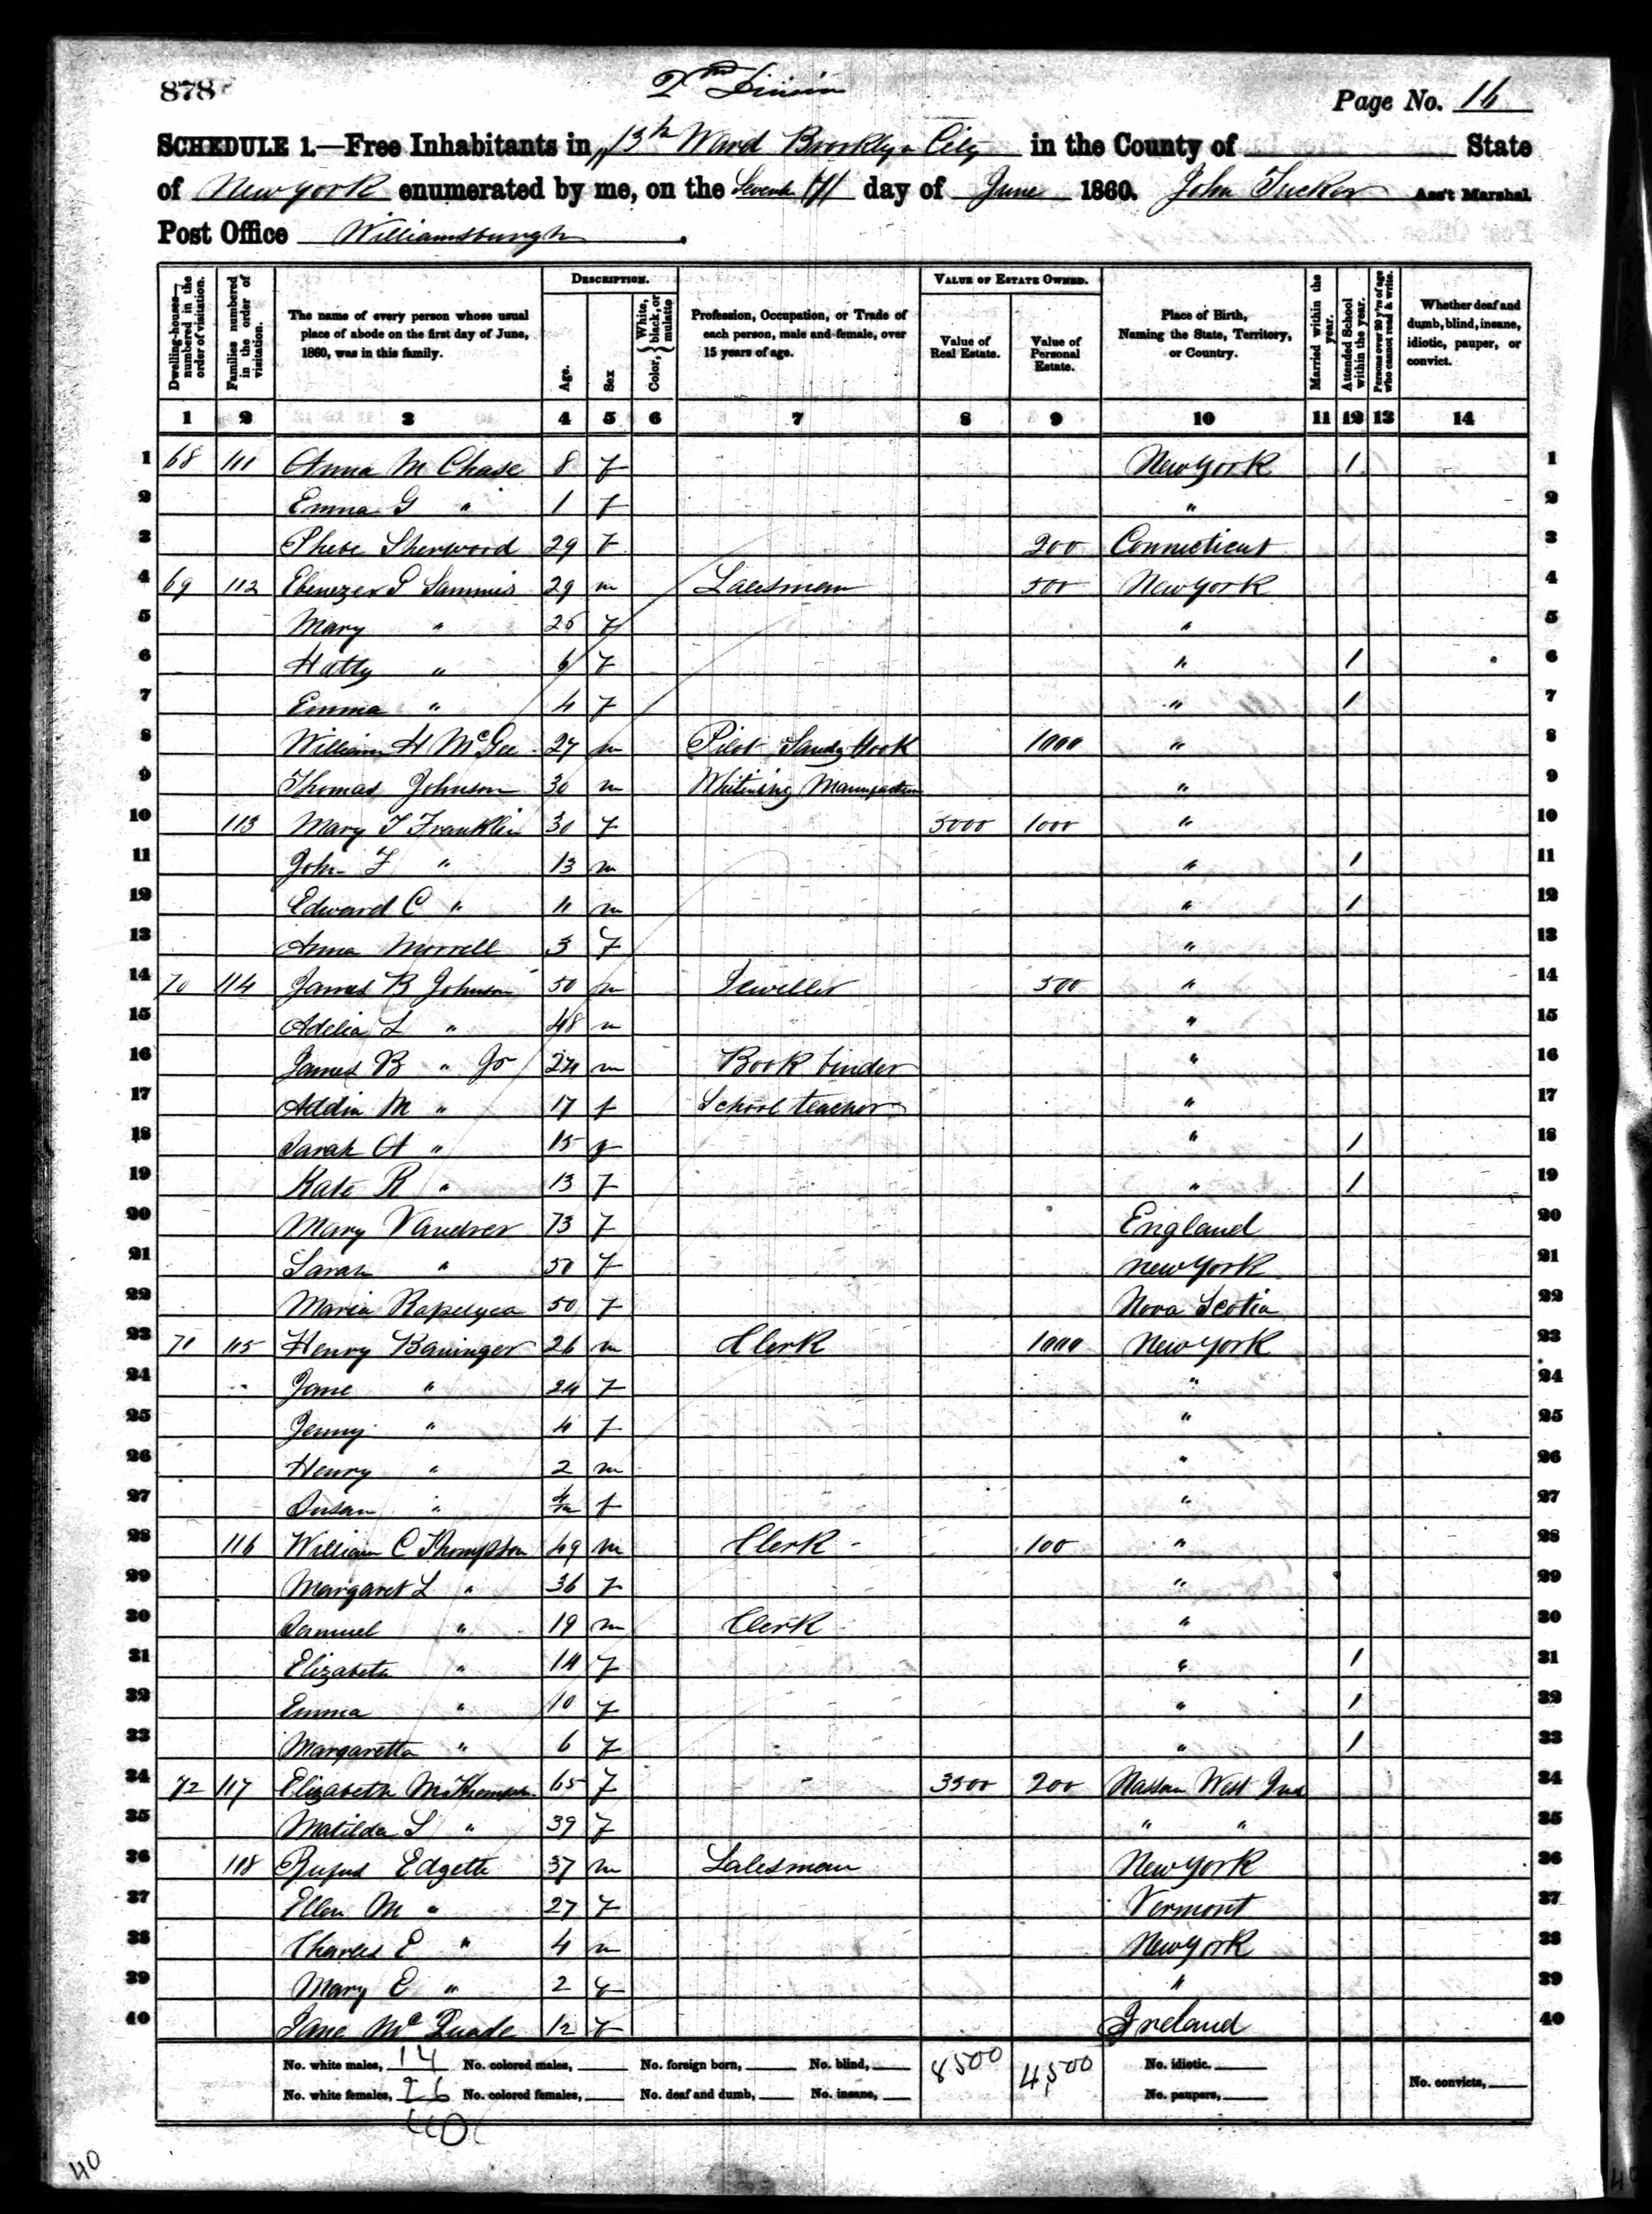 878
2nd Division
Page No. 16
SCHEDULE 1.—Free Inhabitants in 13th Ward Brooklyn City in the County of State
of New York enumerated by me, on the Seventh (7) day of June 1860. John Tucker Ass't Marshal
Post Office Williamsburgh.
DESCRIPTION. VALUE OF ESTATE OWNED.
Dwelling-houses—numbered in the order of visitation.
Families numbered in the order of visitation.
The name of every person whose usual place of abode on the first day of June, 1860, was in this family.
Age.
Sex
Color, { White, black, or mulatto
Profession, Occupation, or Trade of each person, male and female, over 15 years of age.
Value of Real Estate.
Value of Personal Estate.
Place of Birth, Naming the State, Territory, or Country.
Married within the year.
Attended School within the year.
Persons over 20 y'rs of age who cannot read & write.
Whether deaf and dumb, blind, insane, idiotic, pauper, or convict.
1 2 3 4 5 6 7 8 9 10 11 12 13 14
1 68 111 Anna M Chase 8 f New York 1 1
2 Emma G " 1 f " 2
3 Phebe Sherwood 29 f 200 Connecticut 3
4 69 112 Ebenezer P Sammis 29 m Salesman 500 New York 4
5 Mary " 26 f " 5
6 Hatty " 6 f " 1 6
7 Emma " 4 f " 1 7
8 William H McGee 27 m Pilot Sandy Hook 1000 " 8
9 Thomas Johnson 30 m Whitining Manufacture " 9
10 113 Mary T Franklin 30 f 5000 1000 " 10
11 John F " 13 m " 1 11
12 Edward C " 11 m " 1 12
13 Anna Morrell 3 f " 13
14 70 114 James B Johnson 50 m Jeweller 500 " 14
15 Adelia L " 48 m " 15
16 James B " Jr 24 m Book binder " 16
17 Addia M " 17 f School teacher " 17
18 Sarah A " 15 f " 1 18
19 Kate R " 13 f " 1 19
20 Mary 73 f England 20
21 Sarah " 50 f New York 21
22 Maria Rapelyea 50 f Nova Scotia 22
23 71 115 Henry Baninger 26 m Clerk 1000 New York 23
24 Jane " 24 f " 24
25 Jenny " 4 f " 25
26 Henry " 2 m " 26
27 Susan " 4/12 f " 27
28 116 William C Thompson 49 m Clerk 100 " 28
29 Margaret L " 36 f " 29
30 Samuel " 19 m Clerk " 30
31 Elizabeth " 14 f " 1 31
32 Emma " 10 f " 1 32
33 Margaretta " 6 f " 1 33
34 72 117 Elizabeth M Thompson 65 f 3500 200 Nassau West Ind 34
35 Matilda L " 39 f " " 35
36 118 Rufus Edgett 37 m Salesman New York 36
37 Ellen M " 27 f Vermont 37
38 Charles E " 4 m New York 38
39 Mary E " 2 f " 39
40 Jane McQuade 12 f Ireland 40
No. white males, 14 No. colored males, No. foreign born, No. blind, 8500 4,500 No. idiotic,
No. white females, 26 No. colored females, No. deaf and dumb, No. insane, No. paupers, No. convicts,
40
40